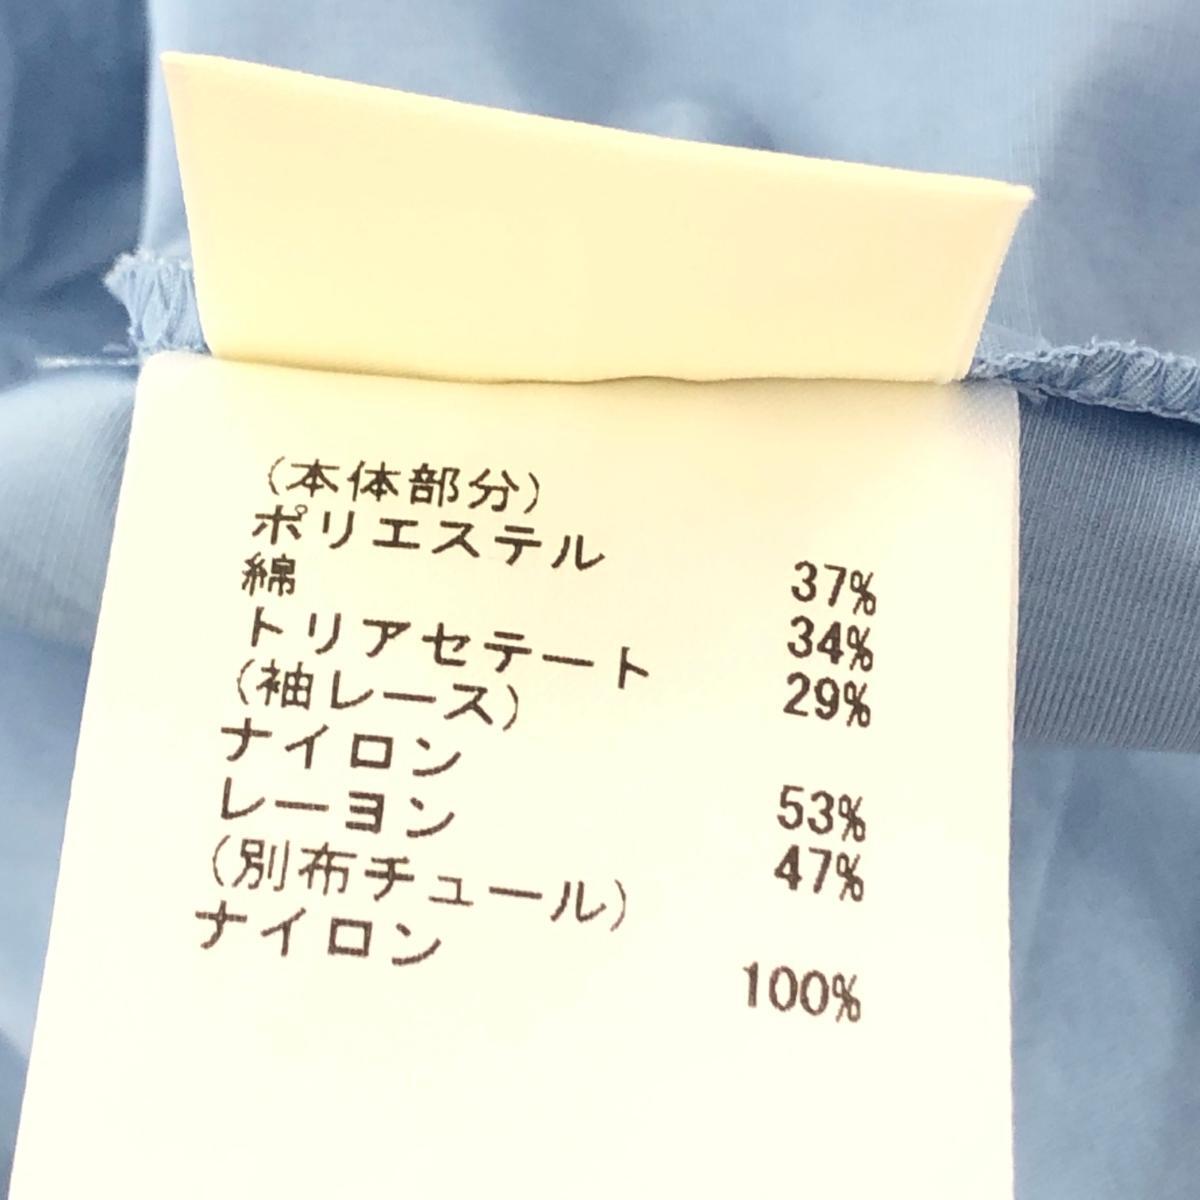 (本体部分)
ポリエステル 37%
綿 34%
トリアセテート 29%
(袖レース)
ナイロン 53%
レーヨン 47%
(別布チュール)
ナイロン 100%